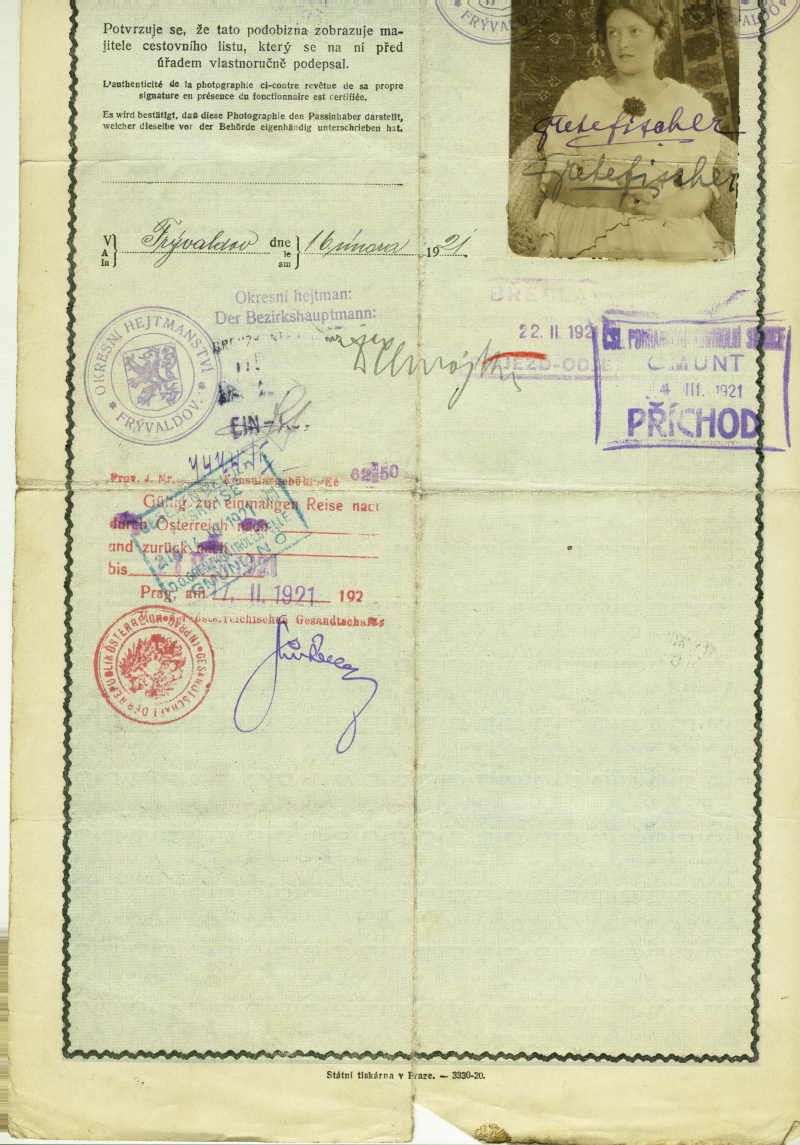 FRÝVALDOV
FRÝVALDOV
Potvrzuje se, že tato podobizna zobrazuje ma-
jitele cestovního listu, který se na ní před
úřadem vlastnoručně podepsal.
L'authenticité de la photographie ci-contre revêtue de sa propre
signature en présence du fonctionnaire est certifiée.
Es wird bestätigt, daß diese Photographie den Passinhaber darstellt,
welcher dieselbe vor der Behörde eigenhändig unterschrieben hat.
Grete Fischer
Grete Fischer
V
A
In
Frývaldov
dne
le
am
16 února
1921
Okresní hejtman:
Der Bezirkshauptmann:
OKRESNÍ HEJTMANSTVÍ
* FRÝVALDOV. *
EIN
22. II. 192
JEZD-OD
GMUNT
III. 1921
PŘÍCHOD
Prov. J. Nr.
Konsulargebühr Kč
62 50
Gültig zur einmaligen Reise nach
durch Österreich nach
und zurück nach
bis
1921
GMÜND
Prag, am 17. II. 1921 192
österreichischen Gesandtschaft:
GESANDTSCHAFT DER REPUBLIK ÖSTERREICH IN PRAG
Státní tiskárna v Praze. — 3330-20.